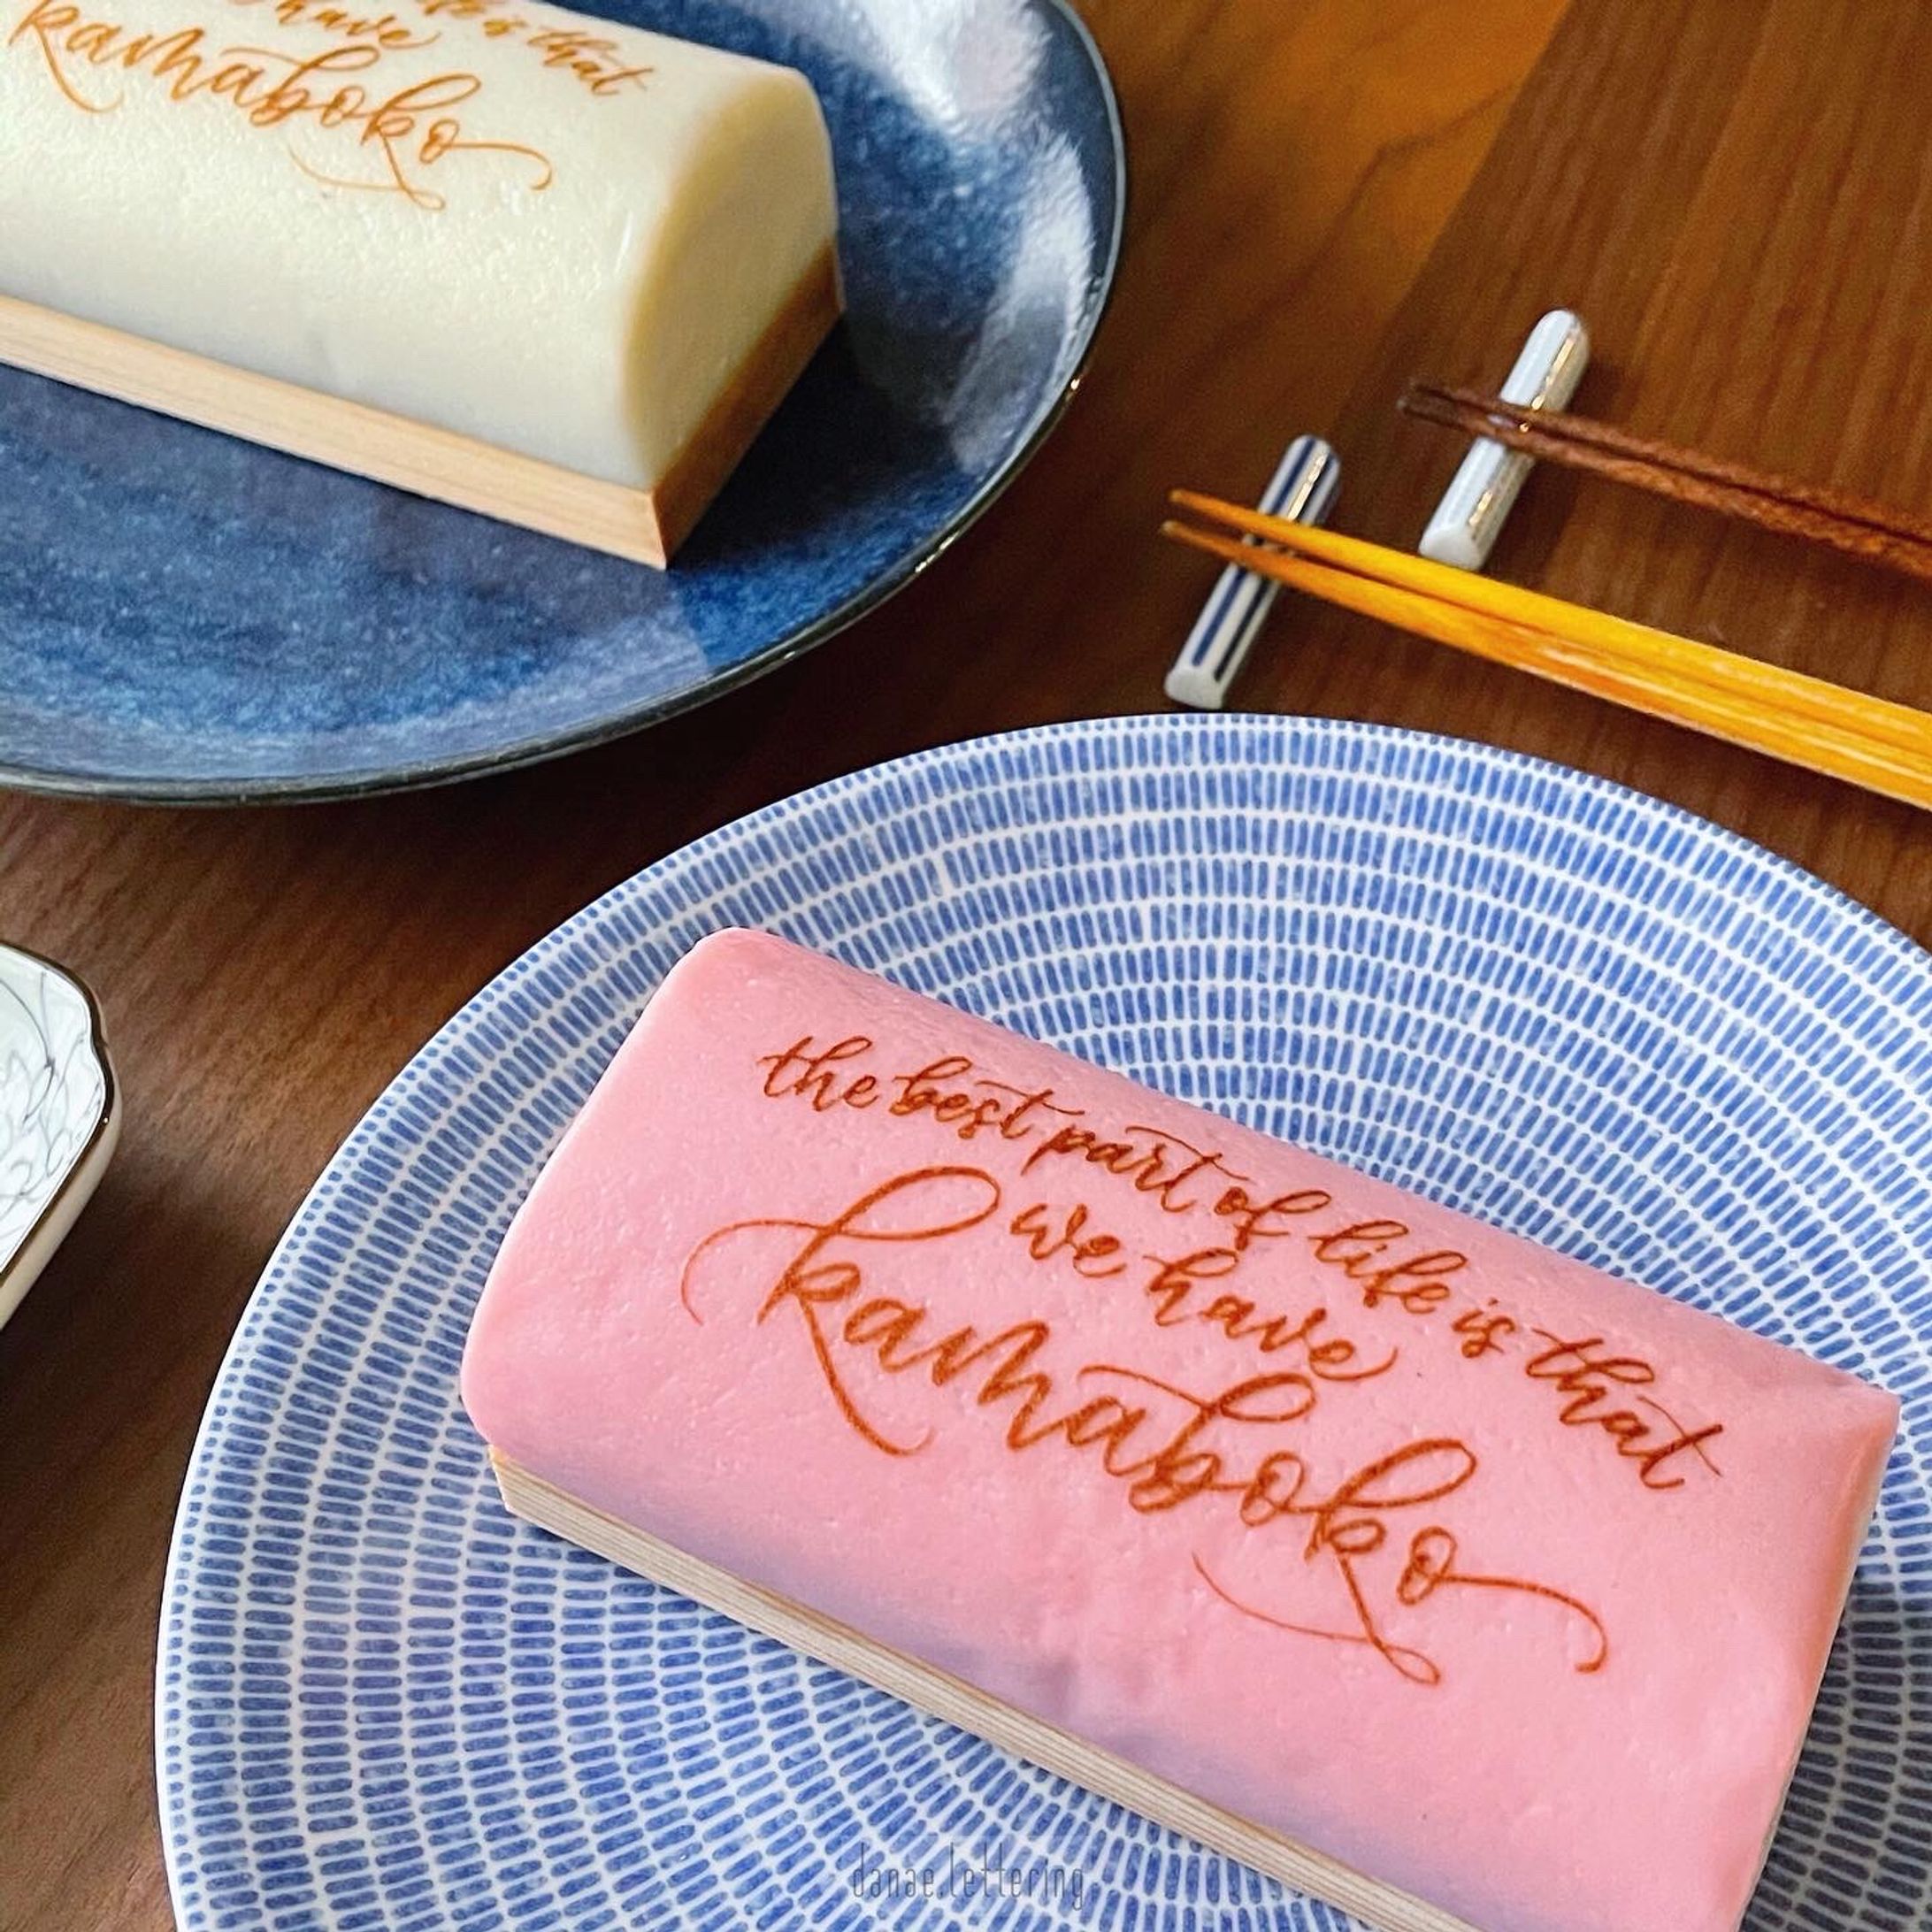 life is that
have
kamaboko
the best part of life is that
we have
kamaboko
danae.lettering